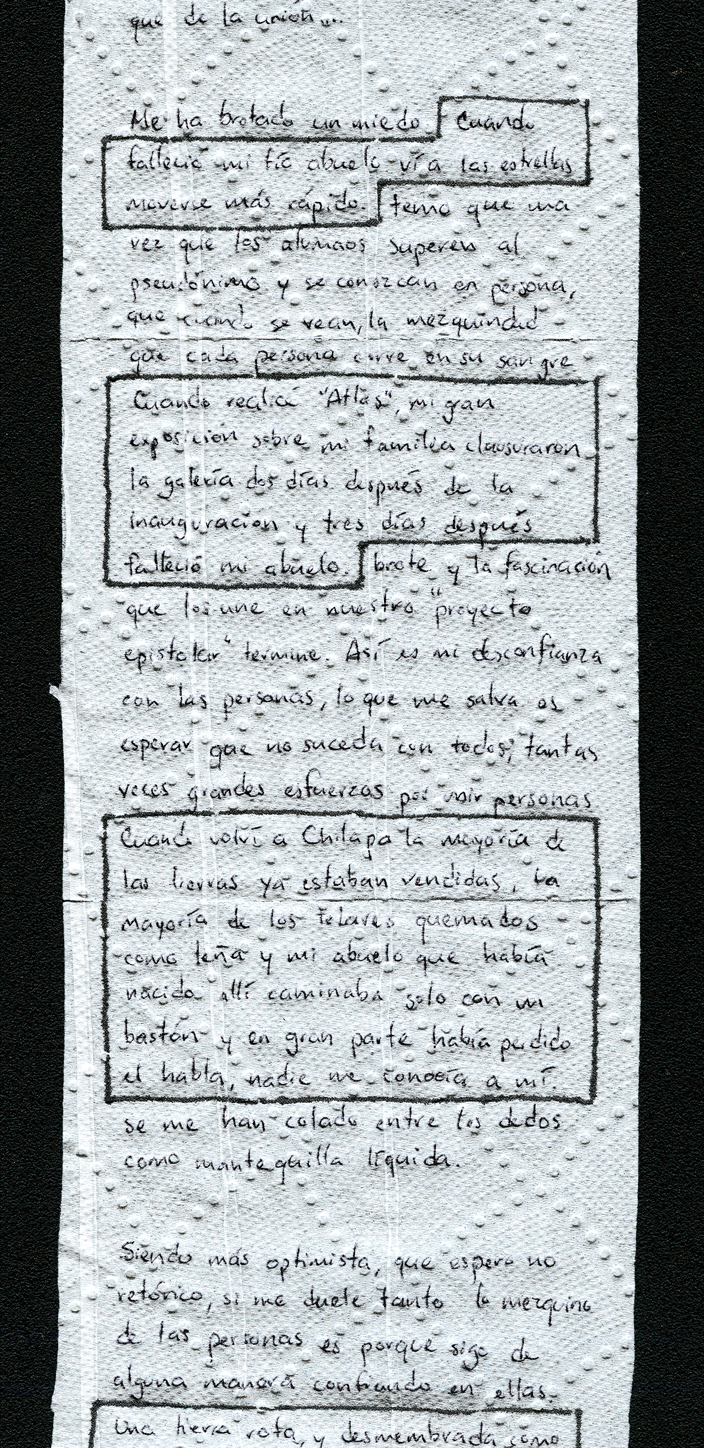 que de la unión...
Me ha brotado un miedo. Cuando
falleció mi tío abuelo vi a las estrellas
moverse más rápido. temo que una
vez que los alumnos superen al
pseudónimo y se conozcan en persona,
que cuando se vean, la mezquindad
que cada persona corre en su sangre
Cuando realicé "Atlas", mi gran
exposición sobre mi familia clausuraron
la galería dos días después de la
inauguración y tres días después
falleció mi abuelo. brote y la fascinación
que los une en nuestro "proyecto
epistolar" termine. Así es mi desconfianza
con las personas, lo que me salva es
esperar que no suceda con todos, tantas
veces grandes esfuerzos por unir personas
Cuando volví a Chilapa la mayoría de
las tierras ya estaban vendidas, la
mayoría de los telares quemados
como leña y mi abuelo que había
nacido allí caminaba solo con un
bastón y en gran parte había perdido
el habla, nadie me conocía a mí.
se me han colado entre los dedos
como mantequilla líquida.
Siendo más optimista, que espero no
retórico, si me duele tanto lo mezquino
de las personas es porque sigo de
alguna manera confiando en ellas.
Una tierra rota, y desmembrada como